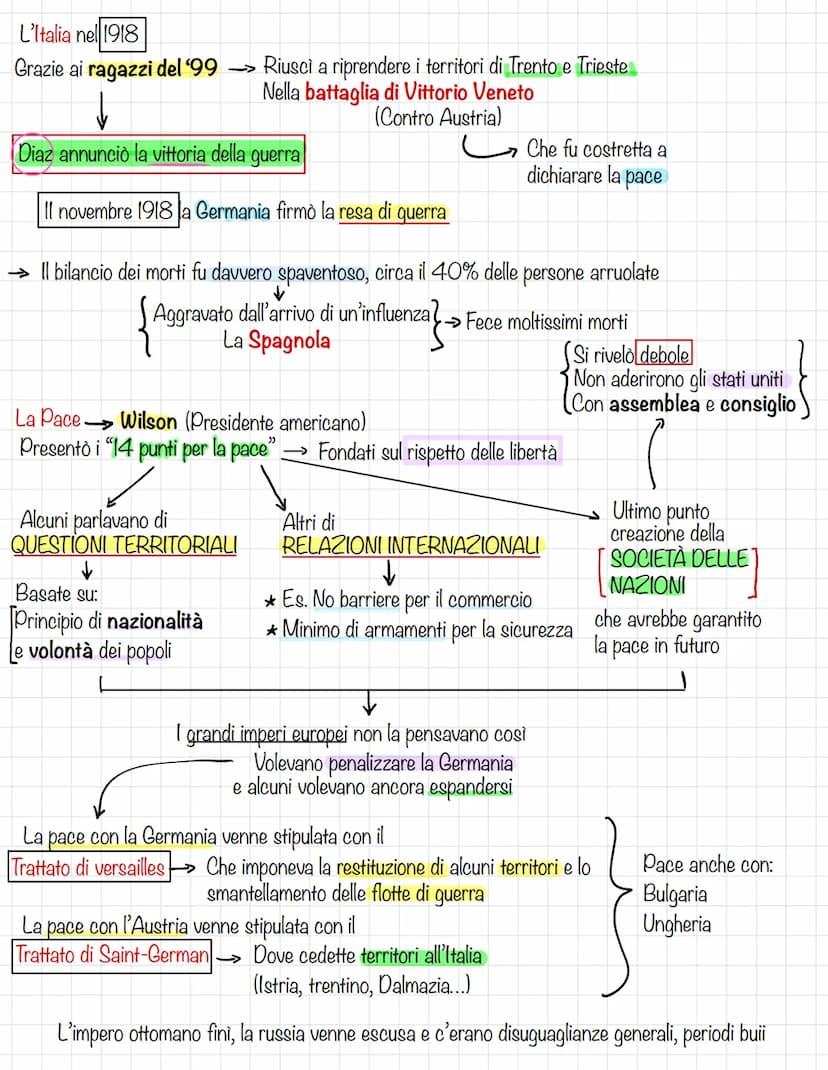 L'Italia nel 1918
Grazie ai ragazzi del '99 → Riuscì a riprendere i territori di Trento e Trieste
Nella battaglia di Vittorio Veneto
(Contro Austria)
Diaz annunciò la vittoria della guerra
Che fu costretta a
dichiarare la pace
11 novembre 1918 la Germania firmò la resa di guerra
→ Il bilancio dei morti fu davvero spaventoso, circa il 40% delle persone arruolate
Aggravato dall'arrivo di un'influenza → Fece moltissimi morti
La Spagnola
Si rivelò debole
Non aderirono gli stati uniti
Con assemblea e consiglio
La Pace → Wilson (Presidente americano)
Presentò i "14 punti per la pace" → Fondati sul rispetto delle libertà
Alcuni parlavano di
QUESTIONI TERRITORIALI
Basate su:
Principio di nazionalità
e volontà dei popoli
Altri di
RELAZIONI INTERNAZIONALI
* Es. No barriere per il commercio
* Minimo di armamenti per la sicurezza
Ultimo punto
creazione della
[SOCIETÀ DELLE
NAZIONI]
che avrebbe garantito
la pace in futuro
I grandi imperi europei non la pensavano così
Volevano penalizzare la Germania
e alcuni volevano ancora espandersi
La pace con la Germania venne stipulata con il
Trattato di versailles → Che imponeva la restituzione di alcuni territori e lo
smantellamento delle flotte di guerra
La pace con l'Austria venne stipulata con il
Trattato di Saint-German → Dove cedette territori all'Italia
(Istria, trentino, Dalmazia...)
Pace anche con:
Bulgaria
Ungheria
L'impero ottomano finì, la russia venne escusa e c'erano disuguaglianze generali, periodi buii